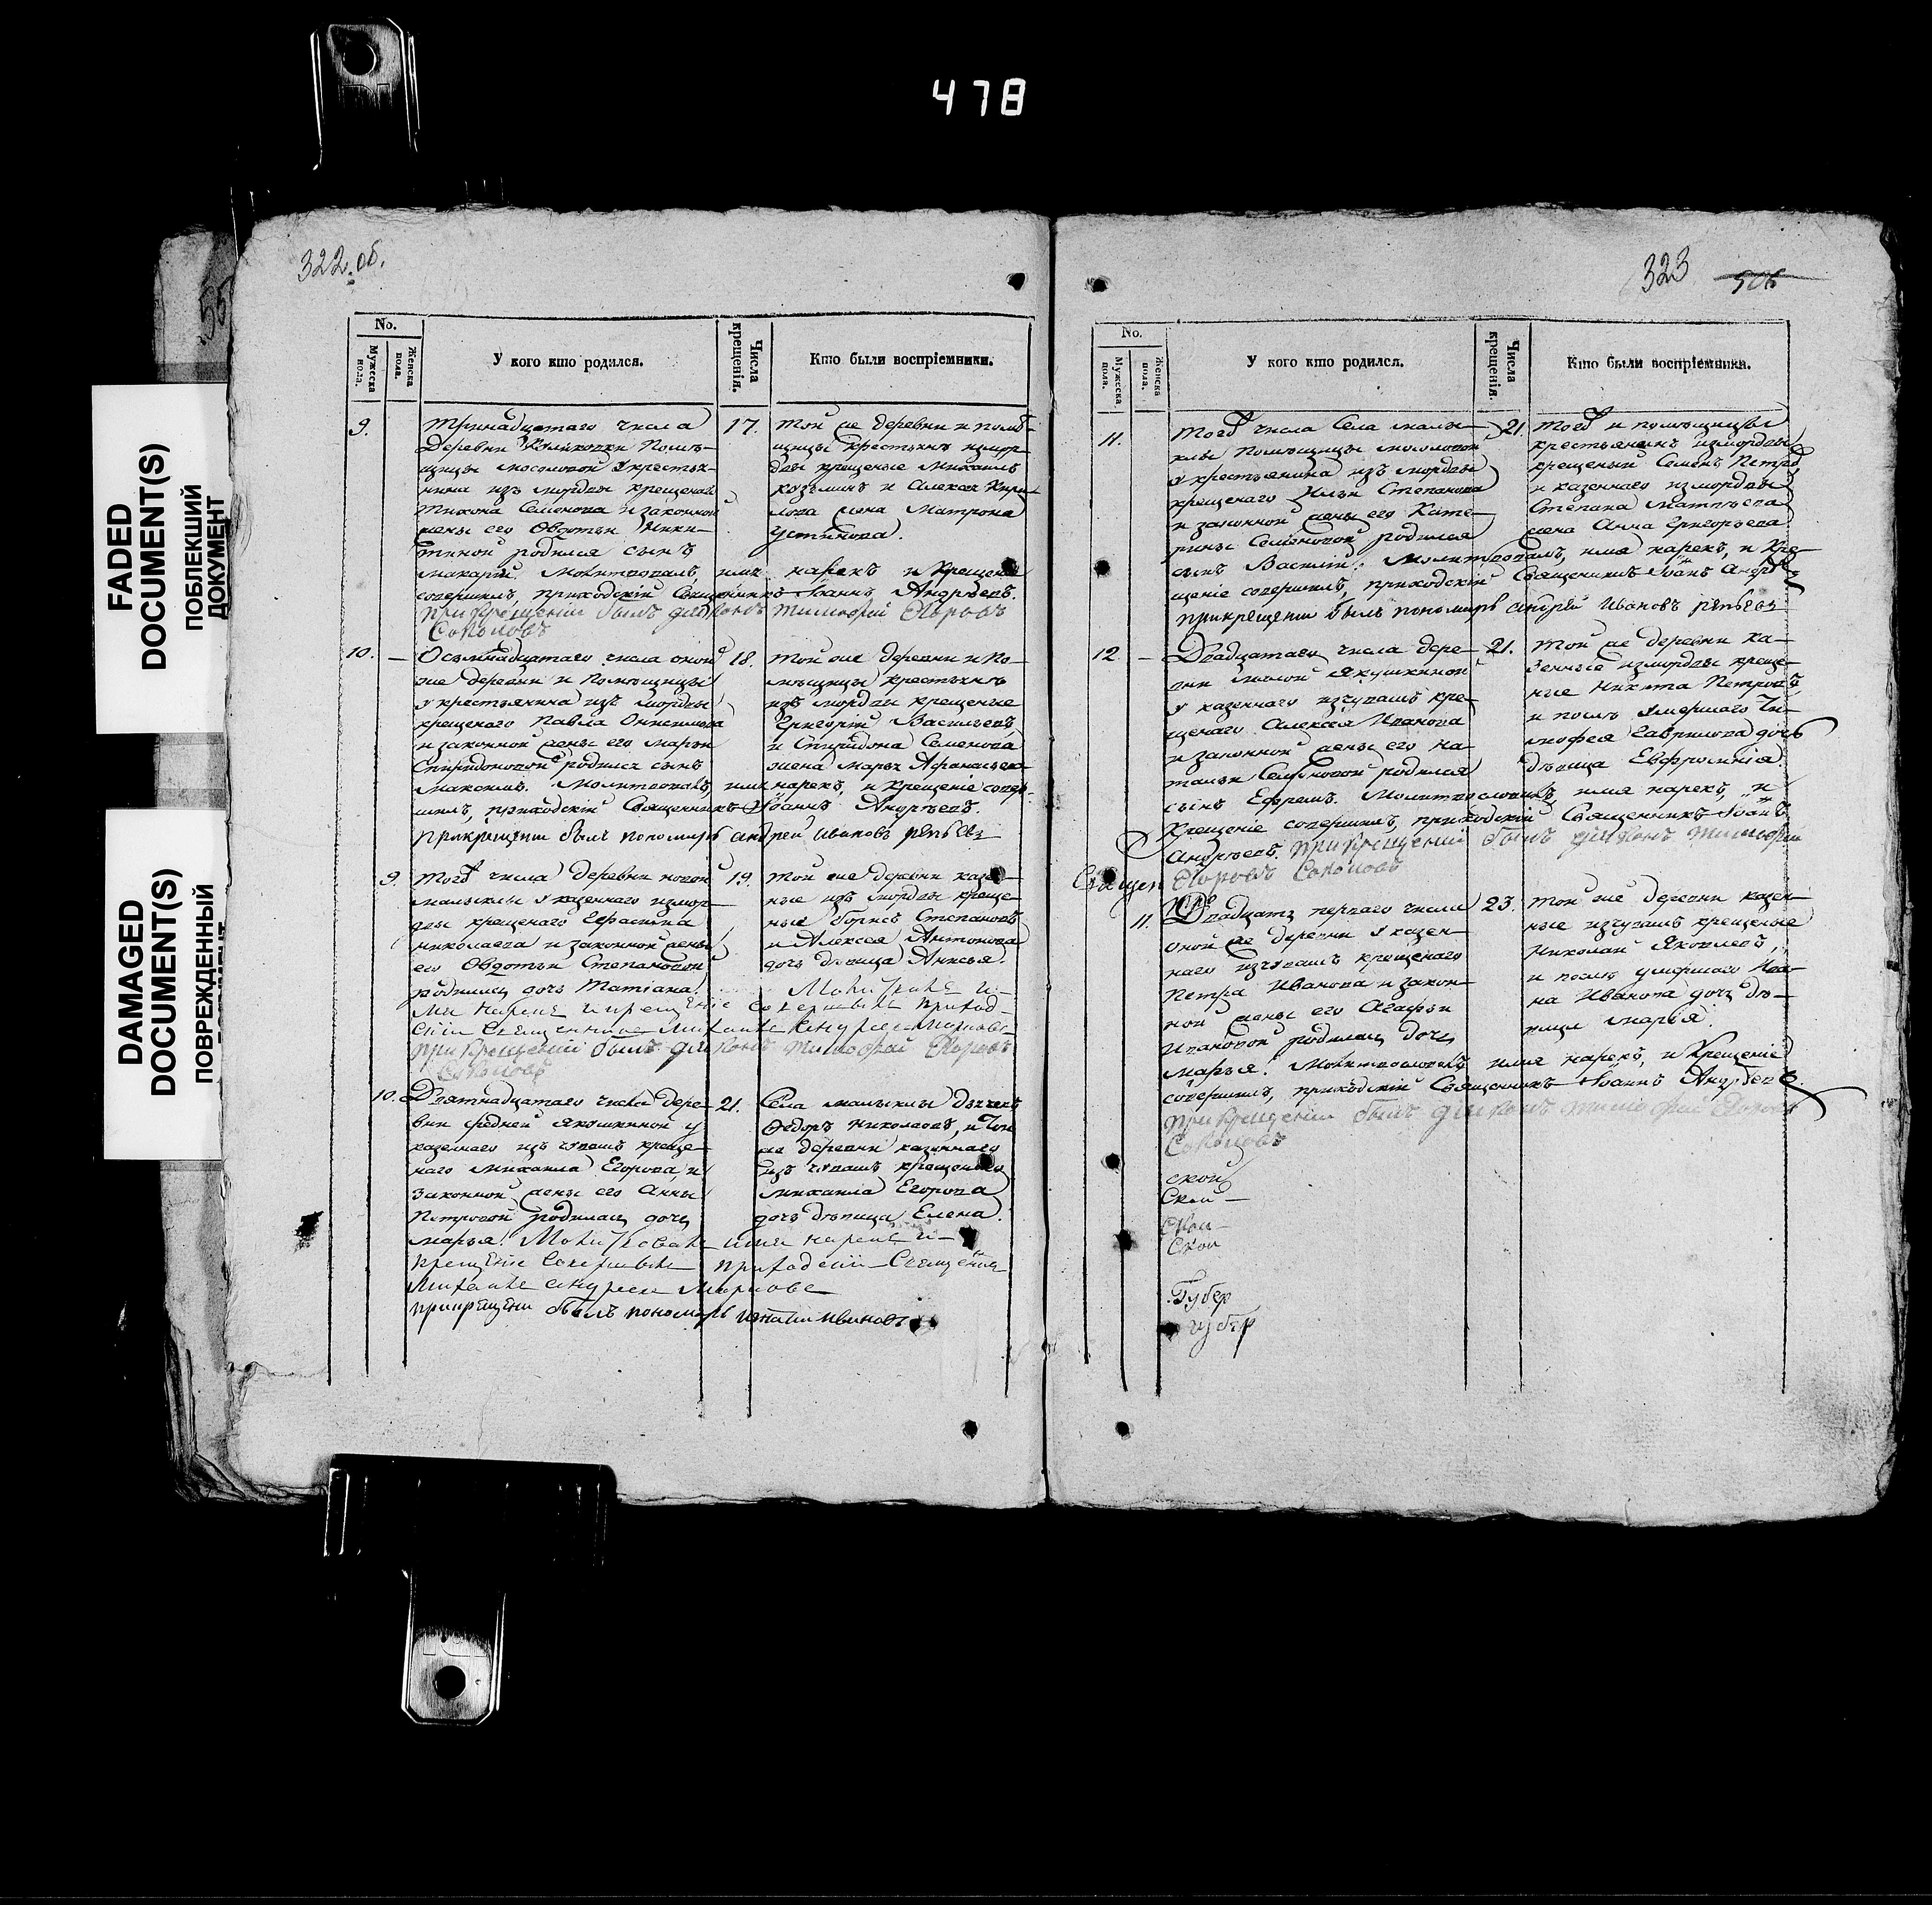 478
FADED
DOCUMENT(S)
ПОБЛЕКШИЙ
ДОКУМЕНТ
DAMAGED
DOCUMENT(S)
ПОВРЕЖДЕННЫЙ
322.об.
No.
Мужеска пола.
Женска пола.
У кого кто родился.
Числа крещенія.
Кто были воспріемники.
9.
Тринадцатаго числа
Деревни Помѣ-
щицы мосоловой у крестья-
нина изъ мордвы крещенаго
Тихона Семенова и законной
жены его Овдотьи Ники-
тиной родился сынъ
Макарій. Молитвовалъ, имя нарекъ и Крещеніе
совершилъ, приходскій Священникъ Іоаннъ Андрѣевъ.
при крещеніи былъ діяконъ тимофей Егоровъ
Соколовъ
17.
Той же деревни и помѣ-
щицы крестьянъ измор-
двы крещеные Михаилъ
Козминъ и Алексея Кири-
лова жена Матрона
Устинова.
10.
Осьмнадцатаго числа оной
же деревни и Помѣщицы
у крестьянина изъ мордвы
крещенаго Павла Онисимова
и законной жены его Марьи
Спиридоновой родился сынъ
Максимъ. Молитвовалъ, имя нарекъ, и Крещеніе совер-
шилъ, приходскій Священникъ Іоаннъ Андрѣевъ.
прикрещении былъ пономарь андрей ивановъ репьевъ
18.
Той же деревни и По-
мѣщицы крестьянъ
изъ мордвы крещеные
Григорій Васильевъ,
и Спиридона Семенова
жена Марья Афанасьева
9.
Тогожъ числа деревни новой
малыклы у казеннаго измор-
двы крещенаго Ефрасина
Николаева и законной жены
его Овдотьи Степановой
родилась дочь Татіана.
Молитвовалъ и-
мя нарекъ и крещеніе совершилъ приход-
скій Священникъ Михаилъ
при крещеніи былъ діяконъ тимофей Егоровъ
Соколовъ
19.
Той же деревни казен-
ные изъ мордвы креще-
ные Борисъ Степановъ
и Алексея Антонова
дочь дѣвица Анисья.
10.
Девятнадцатаго числа дере-
вни средней Якошкиной у
казеннаго изъ чувашъ креще-
наго Михаила Егорова, и
законной жены его Анны
Петровой родилась дочь
Марья. Молитвовалъ имя нарекъ и
крещеніе совершилъ приходскій Священникъ
Михаилъ
прикрещени былъ пономарь ивановъ
21.
Села малыклы дьячекъ
Ѳедоръ Николаевъ, и той
же деревни казеннаго
изъ чувашъ крещенаго
Михаила Егорова
дочь дѣвица Елена.
323
No.
Мужеска пола.
Женска пола.
У кого кто родился.
Числа крещенія.
Кто были воспріемники.
11.
Тогожъ числа Села малы-
клы Помѣщицы мосоловой
у крестьянина изъ мордвы
крещенаго Ильи Степанова
и законной жены его Кате-
рины Семеновой родился
сынъ Василій. Молитвовалъ, имя нарекъ, и Кре-
щеніе совершилъ, приходскій Священникъ Іоаннъ Андрѣевъ
прикрещении былъ пономарь андрей ивановъ репьевъ
21.
Тогожъ и помѣщицы
крестьянинъ измордвы
крещеный Семенъ Петровъ
и казеннаго измордвы
Степана Матвѣева
жена Анна Григорьева
12
Двадцатаго числа дере-
вни малой Якушкиной
у казеннаго изчувашъ кре-
щенаго Алексея Иванова
и законной жены его На-
тальи Семеновой родился
сынъ Ефремъ. Молитвословилъ, имя нарекъ, и
Крещеніе совершилъ, приходскій Священникъ Іоаннъ
Андрѣевъ. при крещеніи былъ діяконъ тимофей
Егоровъ Соколовъ
21.
Той же деревни ка-
зенные измордвы креще-
ные Никита Петровъ,
и послѣ умершаго Ти-
мофея Гаврилова дочь
дѣвица Евфросинія
Священ
11.
Двадцать перваго числа
оной же деревни у казен-
наго изчувашъ крещенаго
Петра Иванова и закон-
ной жены его Агафьи
Ивановой родилась дочь
Марья. Молитвословилъ имя нарекъ, и Крещеніе
совершилъ, приходскій Священникъ Іоаннъ Андрѣевъ.
при крещеніи былъ діяконъ тимофей Егоровъ
Соколовъ
23.
Той же деревни казен-
ные изчувашъ крещеные
Николай Яковлевъ,
и послѣ умершаго Ива-
на Иванова дочь дѣ-
вица Марья.
ской
Ской
Скои
Скои
Губер
губер